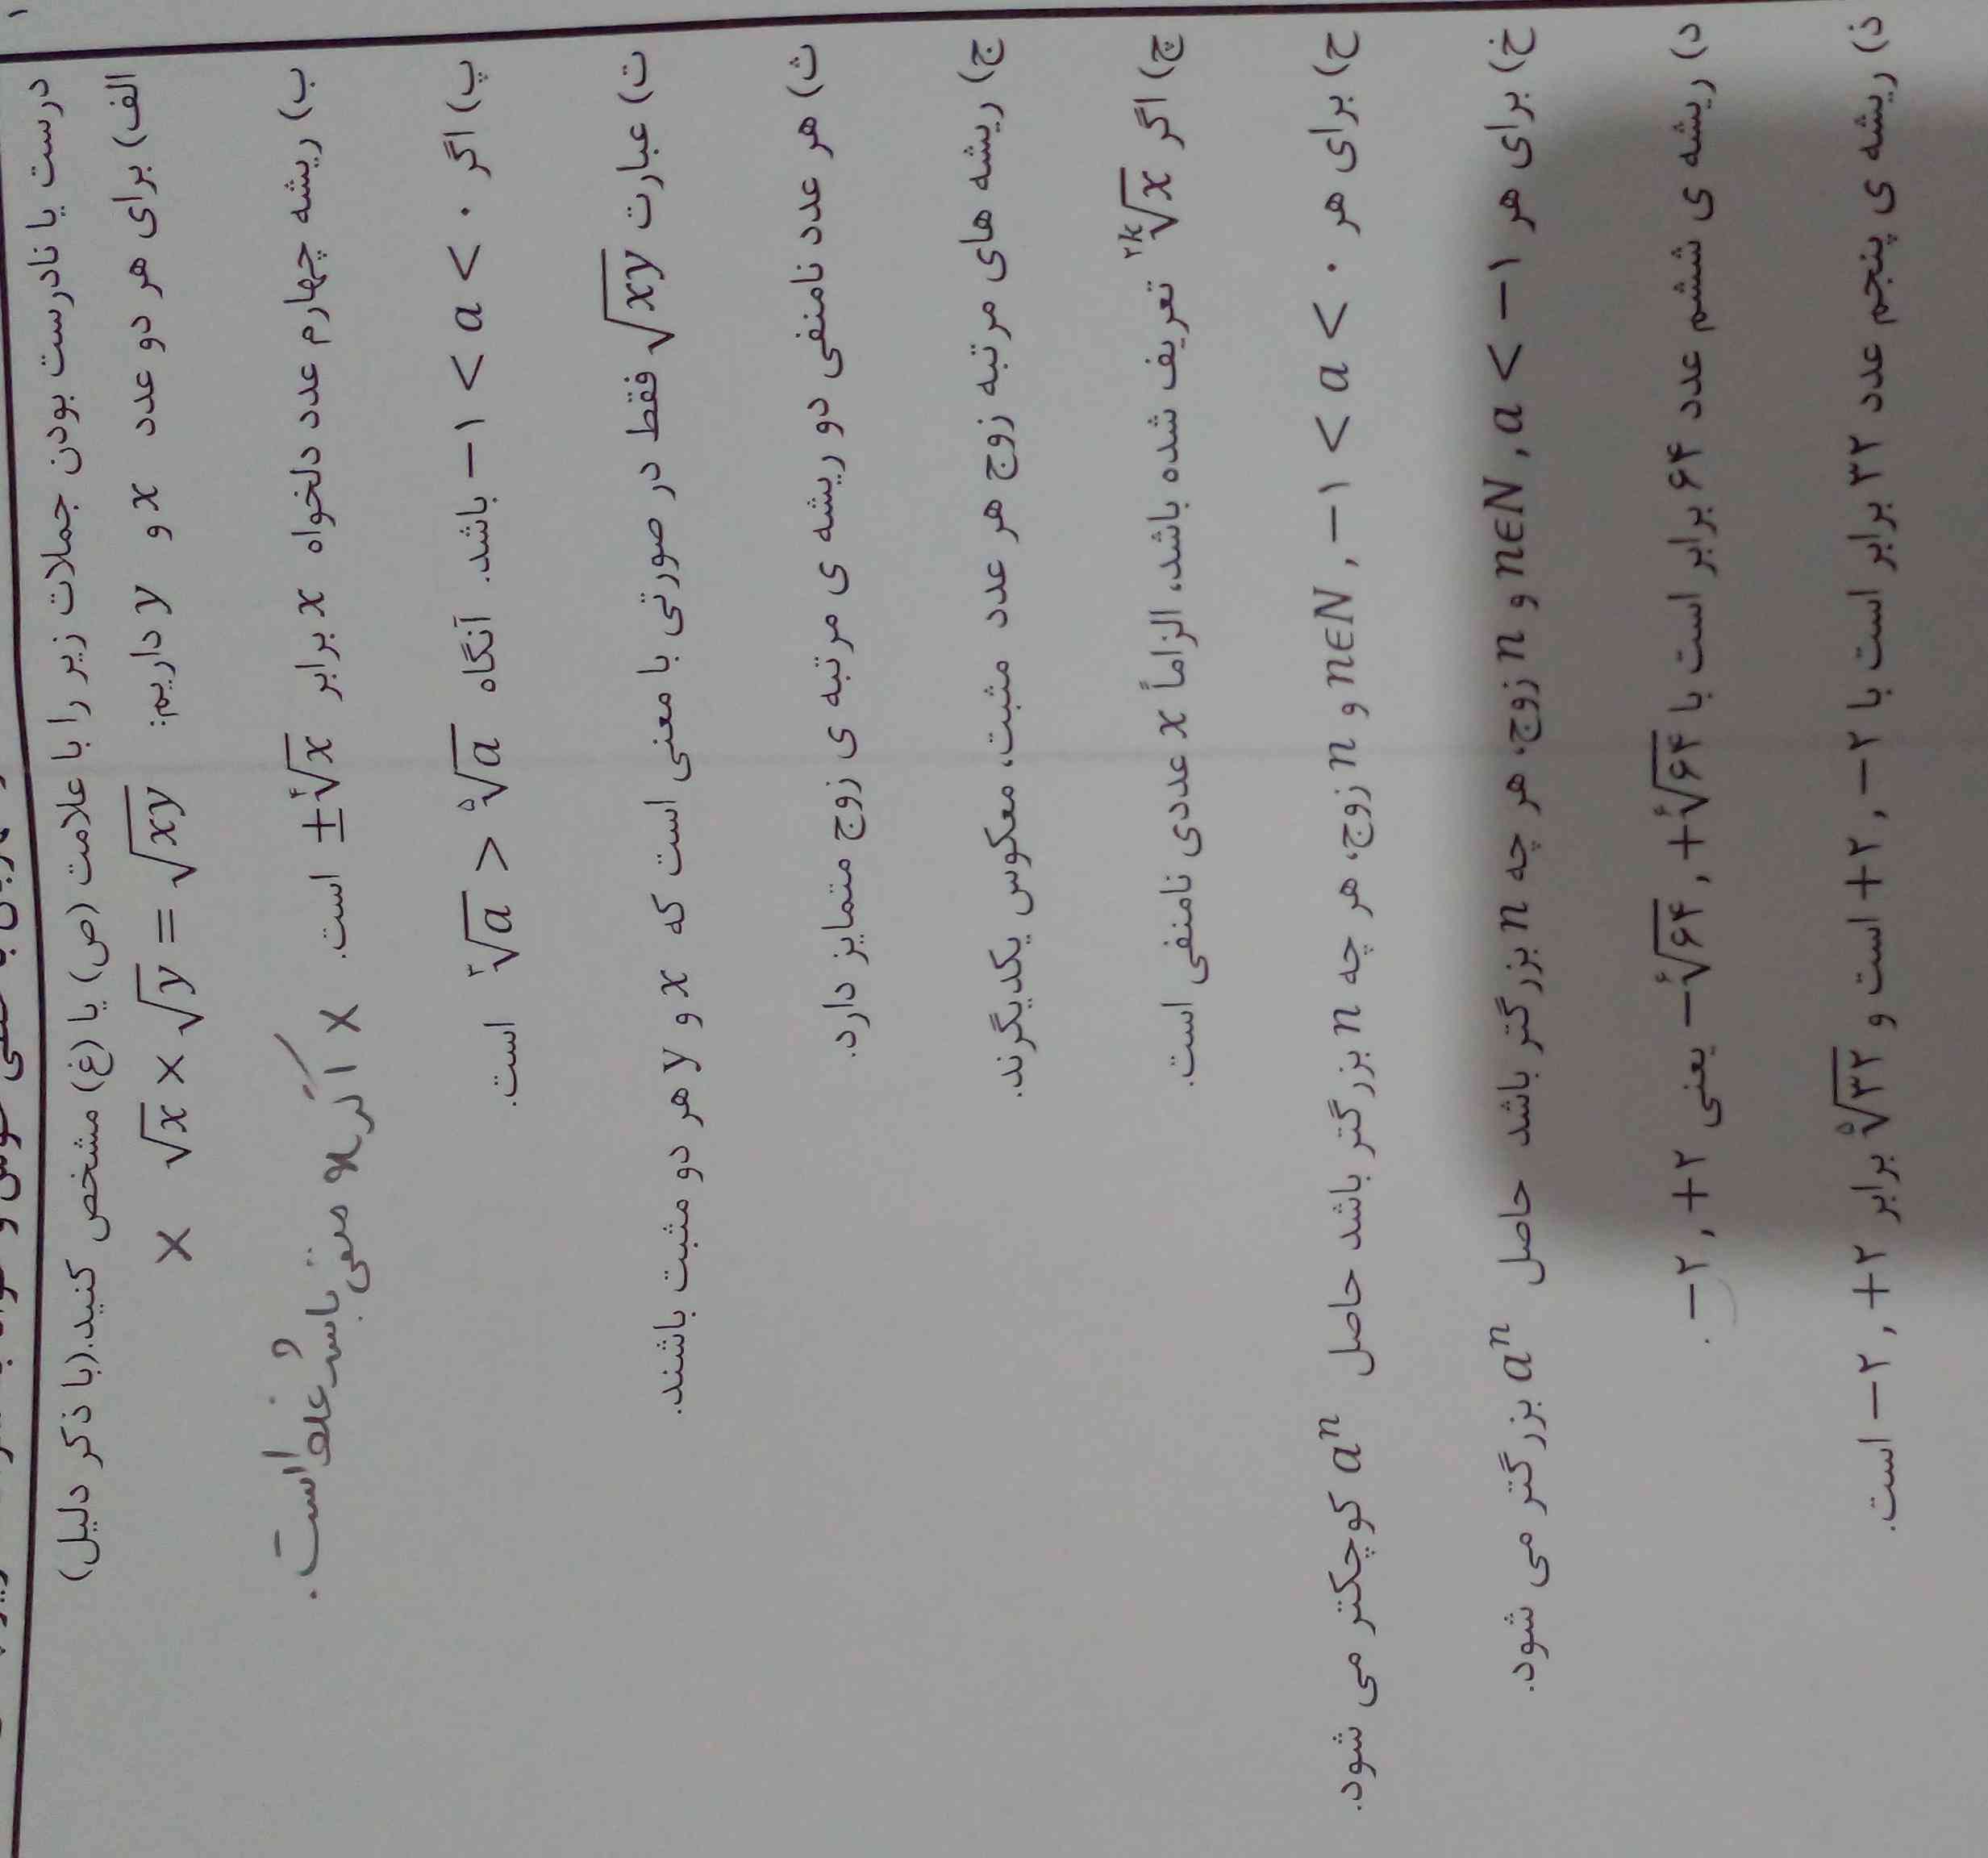 ۱
درست یا نادرست بودن جملات زیر را با علامت (ص) یا (غ) مشخص کنید.(با ذکر دلیل)
الف) برای هر دو عدد x و y داریم: √x × √y = √xy ×
ب) ریشه چهارم عدد دلخواه x برابر ±∜x است. × اگر x منفی باشد غلط است.
پ) اگر ۰ > a > ۱− باشد. آنگاه ∛a > ⁵√a است.
ت) عبارت √xy فقط در صورتی با معنی است که x و y هر دو مثبت باشند.
ث) هر عدد نامنفی دو ریشه ی مرتبه ی زوج متمایز دارد.
ج) ریشه های مرتبه زوج هر عدد مثبت، معکوس یکدیگرند.
چ) اگر ²ᵏ√x تعریف شده باشد، الزاماً x عددی نامنفی است.
ح) برای هر −۱ < a < ۰ , n∈N و n زوج، هر چه n بزرگتر باشد حاصل aⁿ کوچکتر می شود.
خ) برای هر a < −۱ , n∈N و n زوج، هر چه n بزرگتر باشد حاصل aⁿ بزرگتر می شود.
د) ریشه ی ششم عدد ۶۴ برابر است با −⁶√۶۴ , +⁶√۶۴ یعنی −۲ , +۲.
ذ) ریشه ی پنجم عدد ۳۲ برابر است با −۲ , +۲ است و ⁵√۳۲ برابر −۲ , +۲ است.